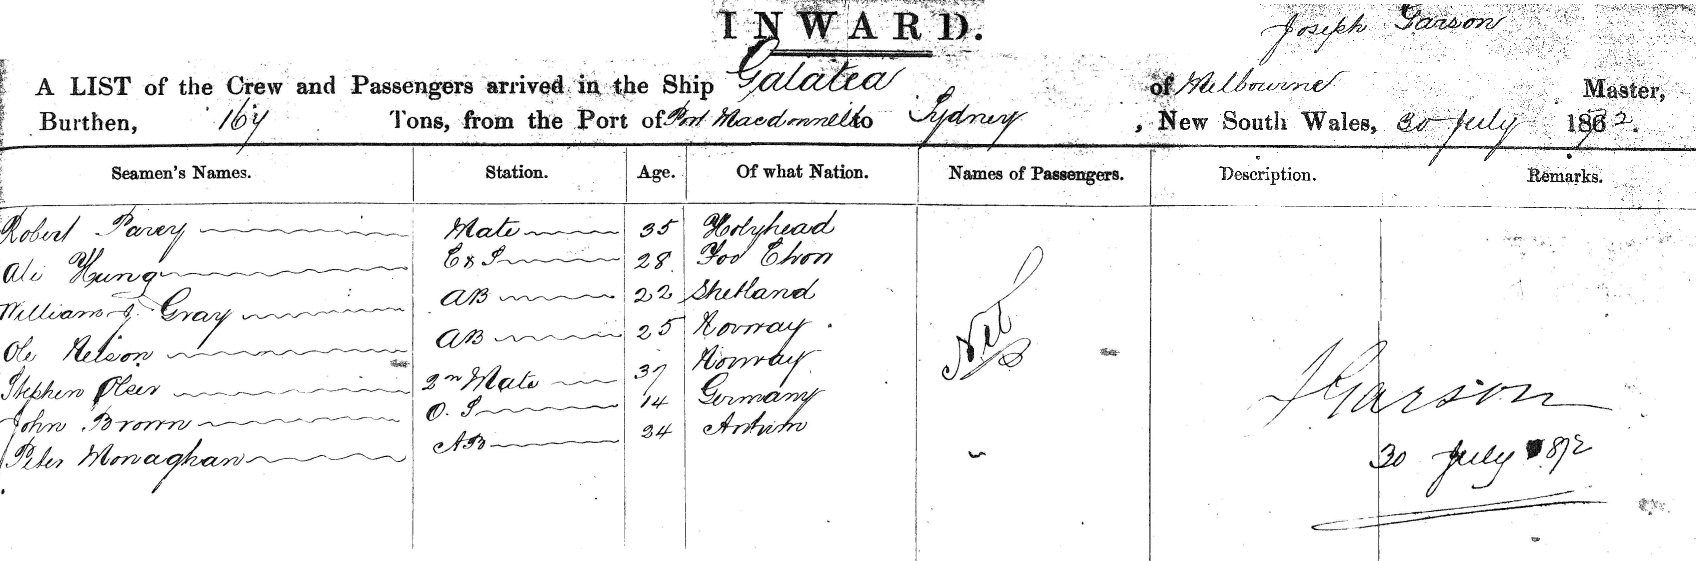 INWARD.
Joseph Garson
A LIST of the Crew and Passengers arrived in the Ship Galatea of Melbourne Master,
Burthen, 167 Tons, from the Port of Port Macdonnell to Sydney, New South Wales, 30 July 1872.
Seamen's Names. Station. Age. Of what Nation. Names of Passengers. Description. Remarks.
Robert Parey Mate 35 Holyhead
Ali Hung C & S 28 Foo Chon
William J. Gray AB 22 Shetland
Ole Nelson AB 25 Norway
Stephen Olsen 2nd Mate 37 Norway
John Brown O.S 14 Germany
Peter Monaghan AB 34 Antrim
Nil
J Garson
30 July 1872